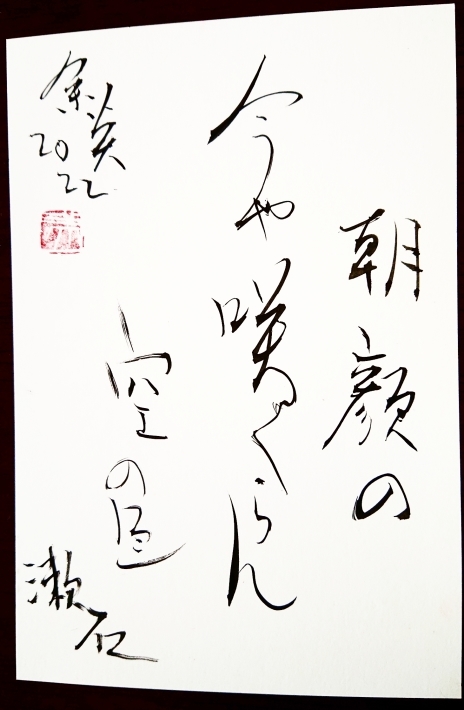 朝顔の
今や咲くらん
空の色
漱石
2022